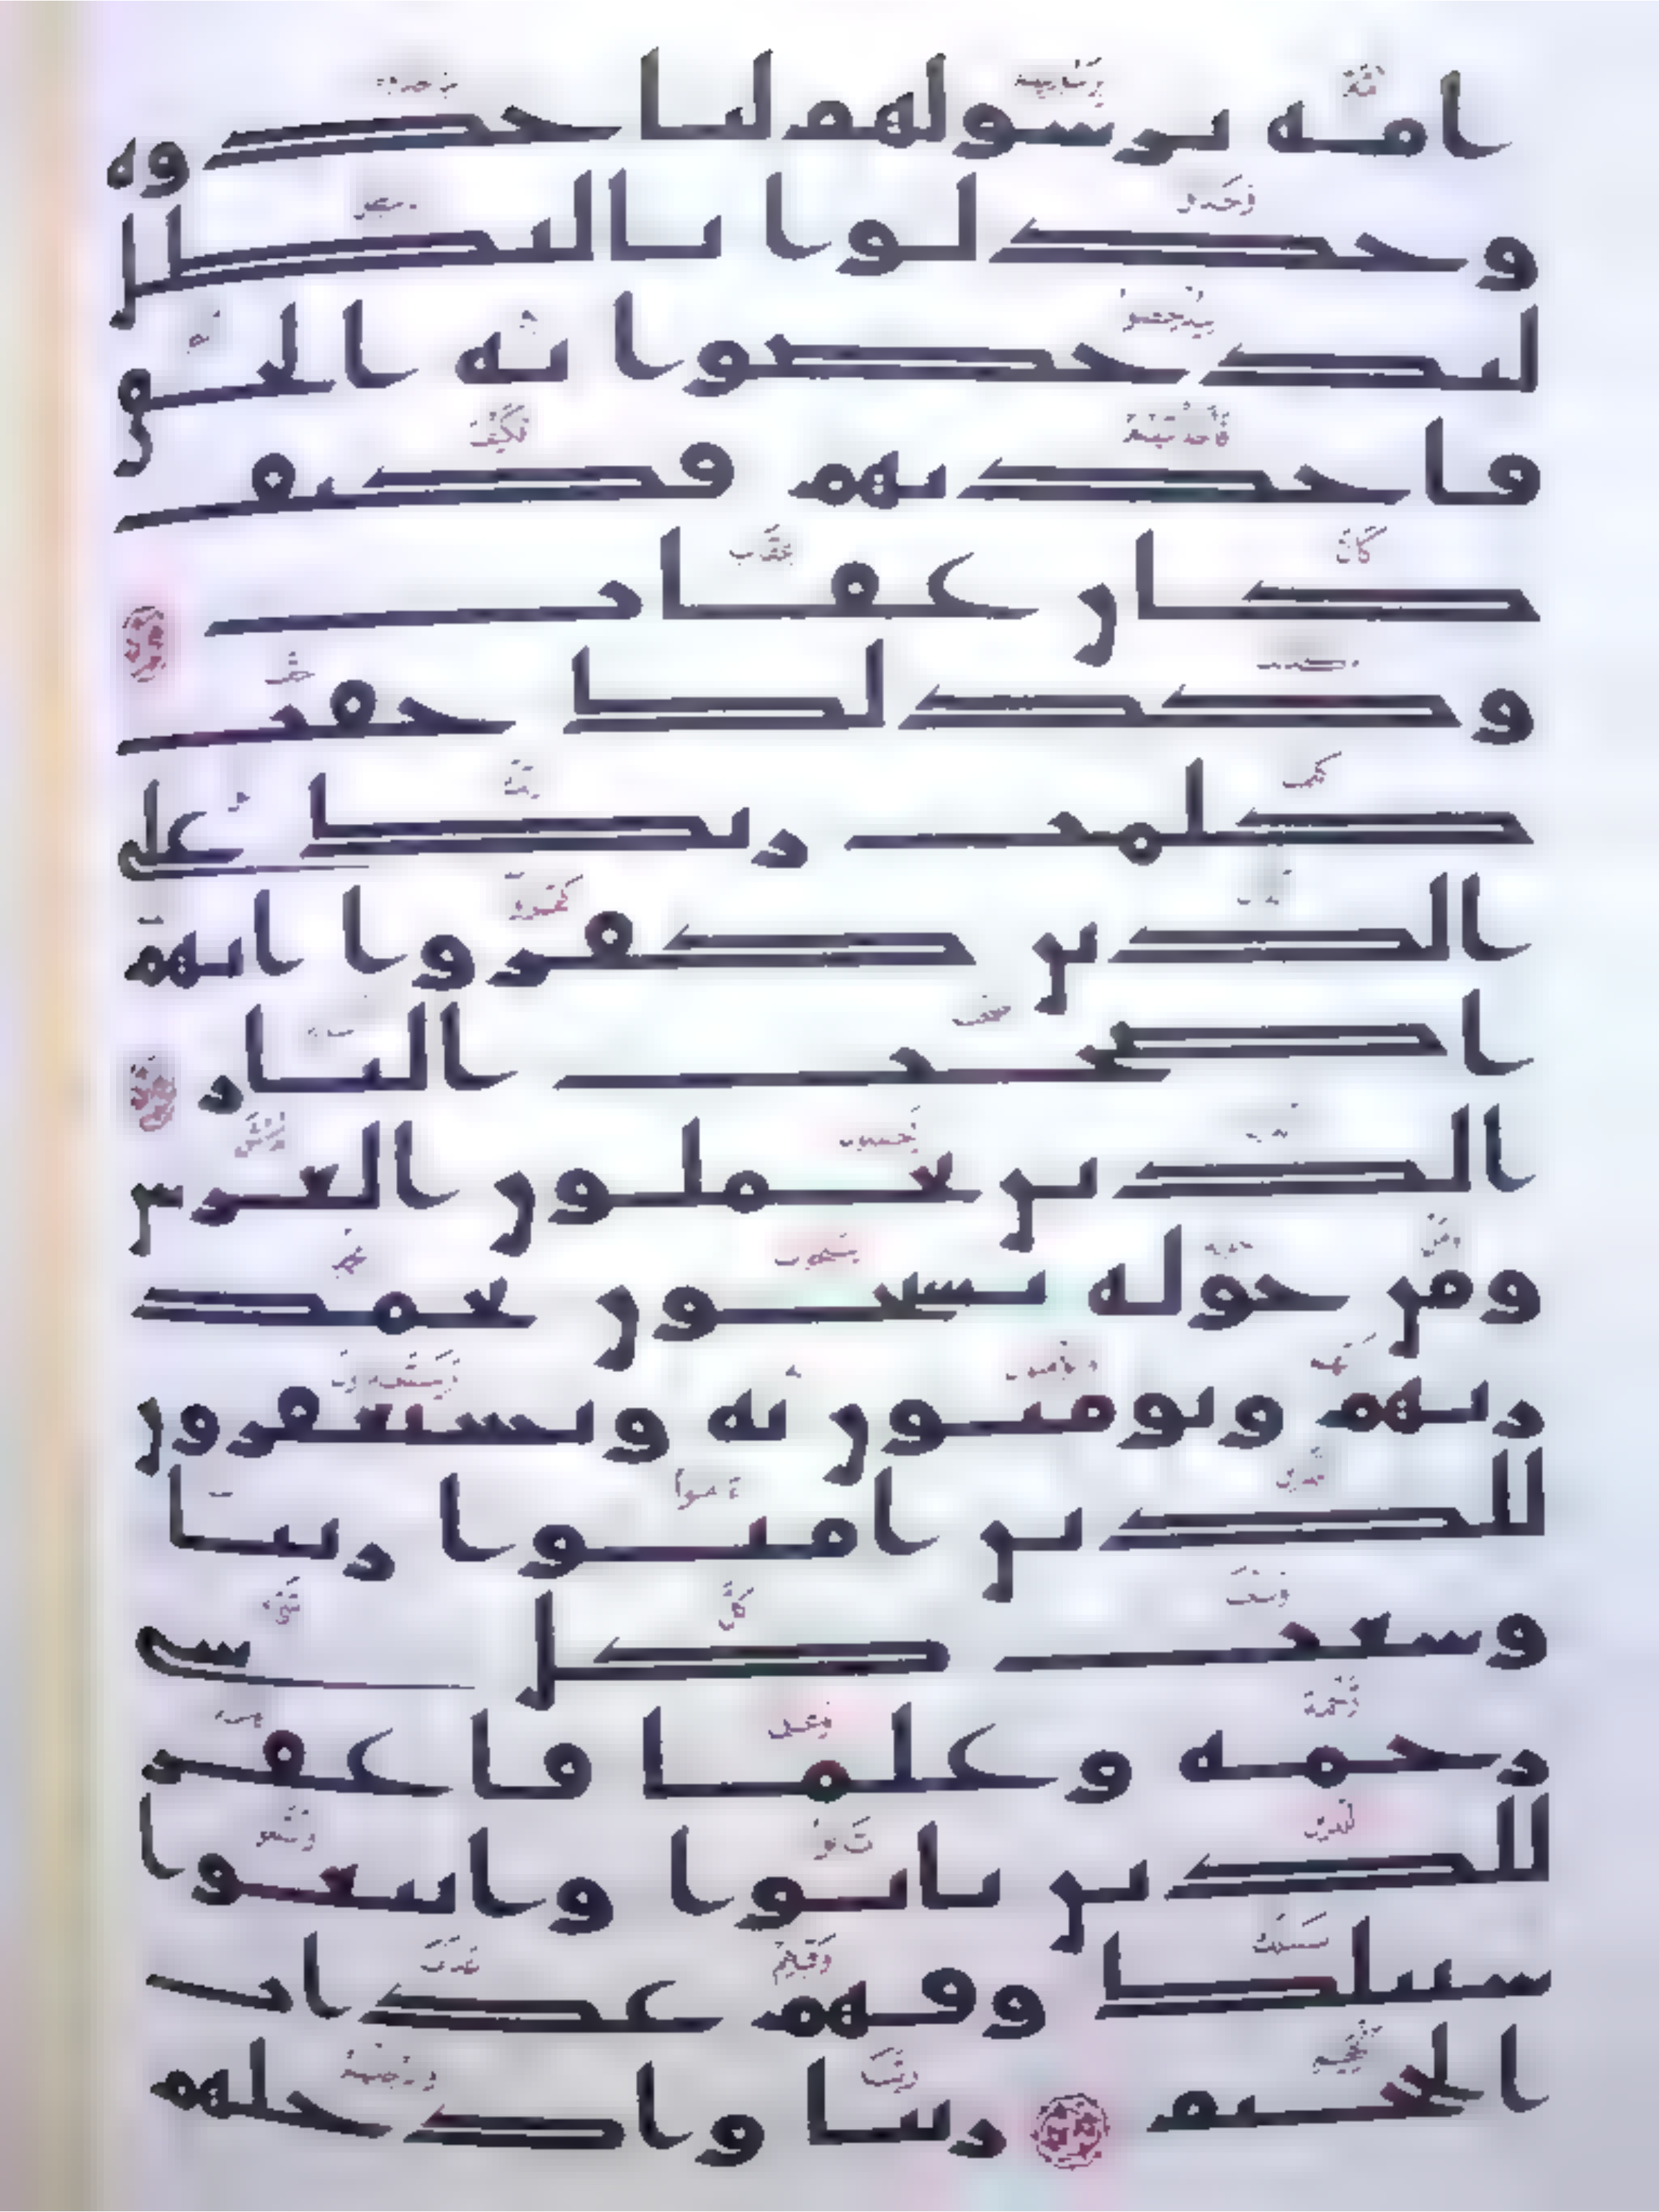 امة برسولهم لياخذوه
وجدلوا بالبطل
ليدحضوا به الحق
فاخذتهم فكيف
كان عقاب
وكذلك حقت
كلمت ربك على
الذين كفروا انهم
اصحب النار
الذين يحملون العرش
ومن حوله يسبحون بحمد
ربهم ويومنون به ويستغفرون
للذين امنوا ربنا
وسعت كل شي
رحمة وعلما فاغفر
للذين تابوا واتبعوا
سبيلك وقهم عذاب
الجحيم ربنا وادخلهم